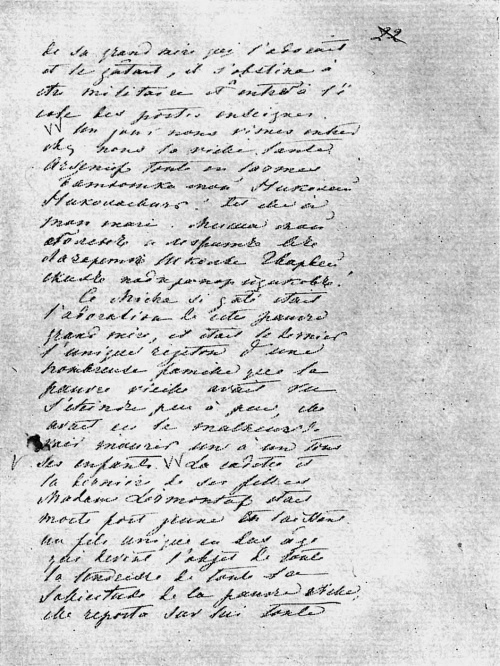 de sa grand mère qui l'adorait
et le gâtait, il s'obstina à
être militaire et entra à l'é
cole des portes enseignes.
Un jour nous vimes entrer
chez nous la vieille tante
Arsenief toute en larmes
Батюшка мой Николай
Николаевичь! dit elle à
mon mari. Миша мой
боленъ и лежитъ въ
лазаретѣ Школы Гвардей
скихъ подпрапорщиковъ!
Ce Micha si gâté était
l'adoration de cette pauvre
grand mère, il était le dernier
l'unique rejeton d'une
nombreuse famille que la
pauvre vieille avait vu
s'éteindre peu à peu, elle
avait eu le malheur de
voir mourir un à un tous
ses enfants. La cadette et
la dernière de ses filles
Madame Lermontoff était
morte fort jeune en laissant
un fils unique en bas âge
qui devint l'objet de toute
la tendresse de toute la
sollicitude de la pauvre vieille,
elle reporta sur lui toute